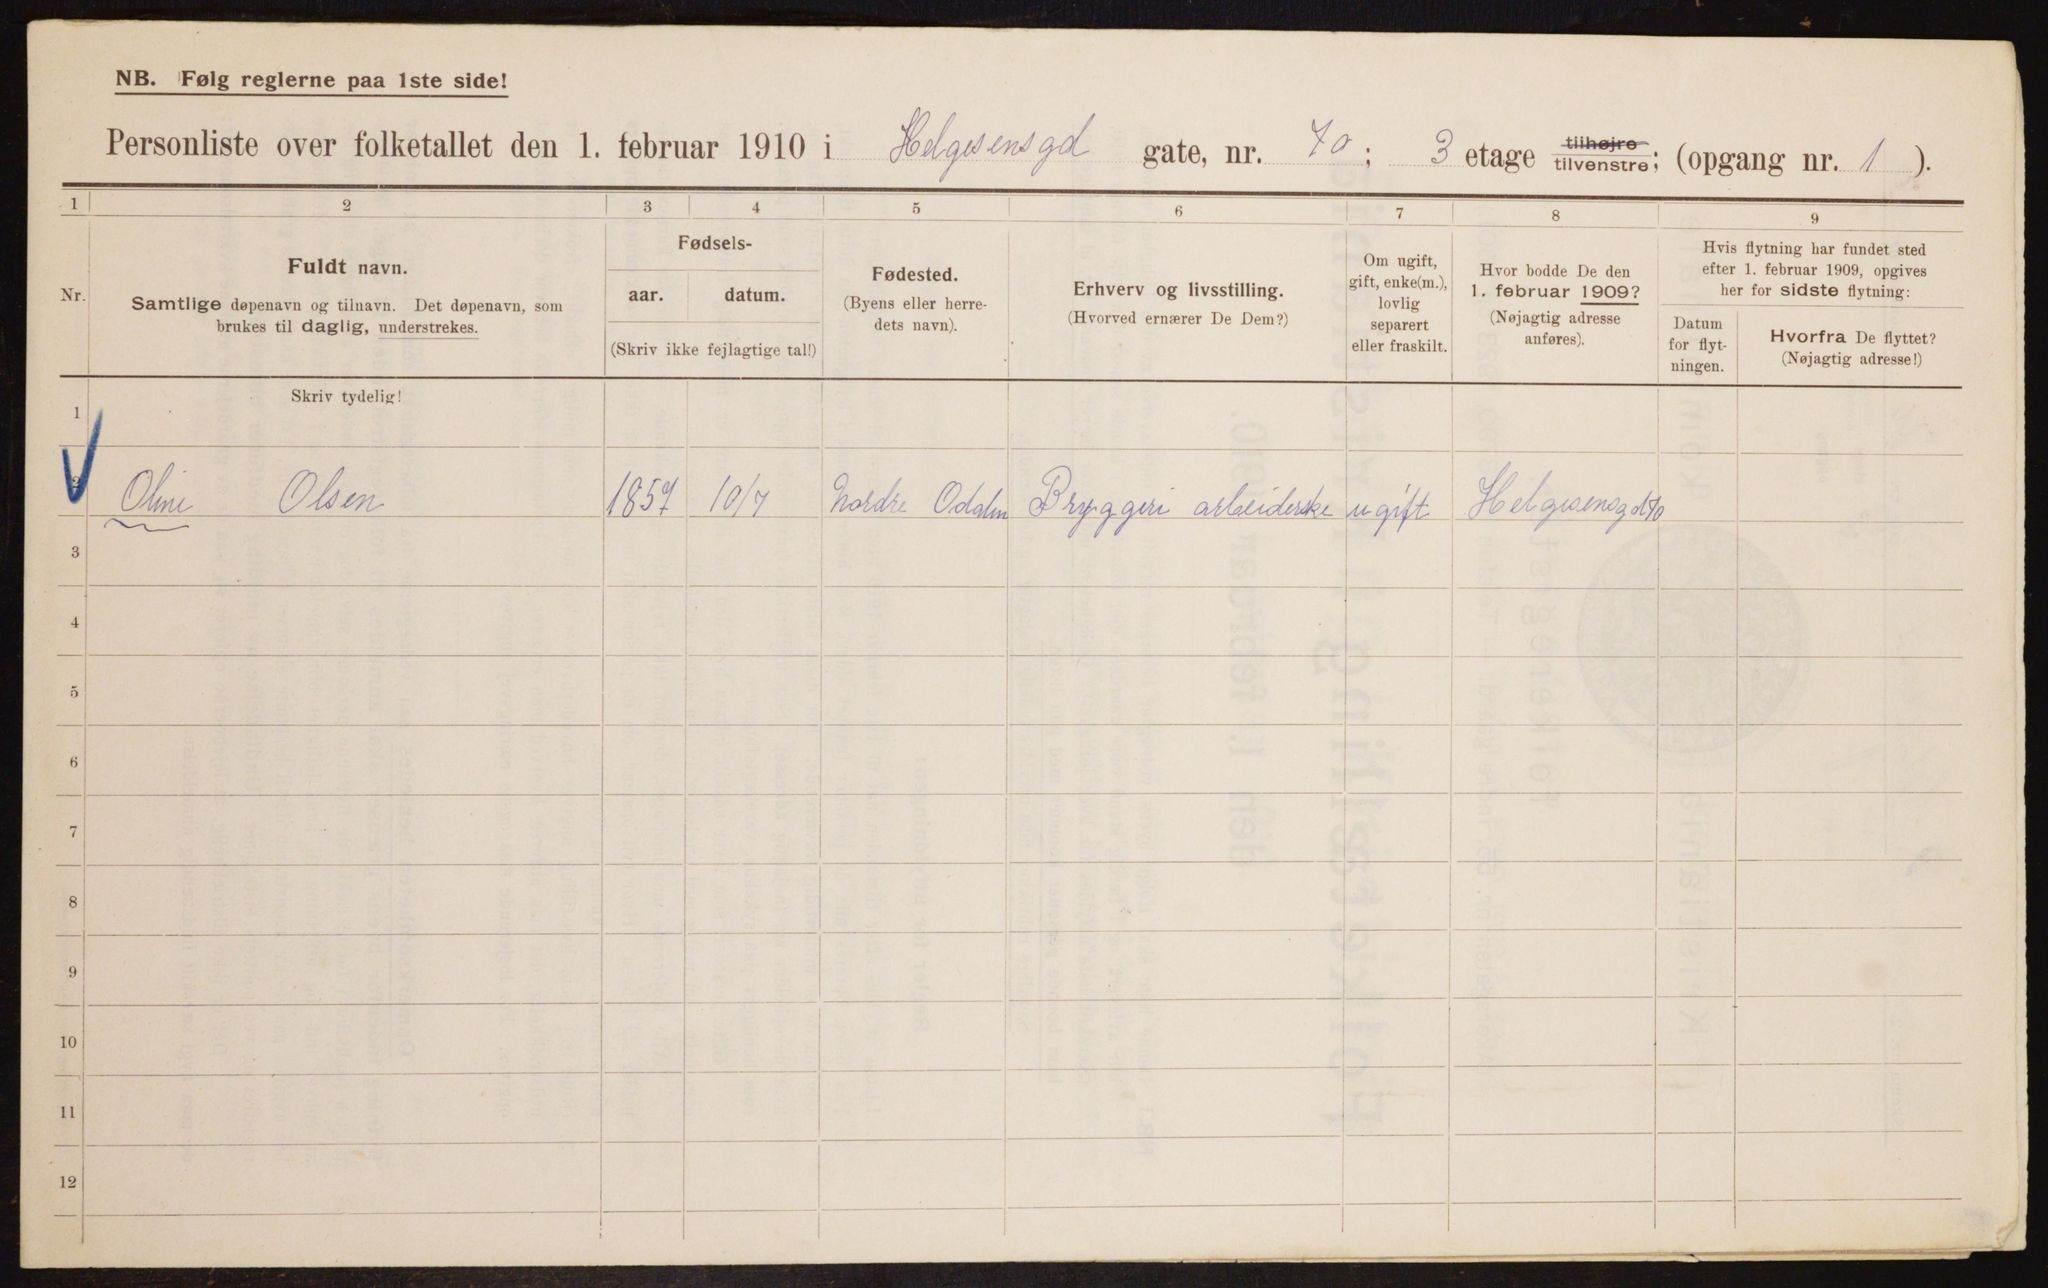 NB. Følg reglerne paa 1ste side!
Personliste over folketallet den 1. februar 1910 i Helgesensgd gate, nr. 70; 3 etage tilhøjre tilvenstre; (opgang nr. 1 ).
1 2 3 4 5 6 7 8 9
Nr.
Fuldt navn.
Samtlige døpenavn og tilnavn. Det døpenavn, som
brukes til daglig, understrekes.
Fødsels-
aar. datum.
(Skriv ikke fejlagtige tal!)
Fødested.
(Byens eller herre-
dets navn).
Erhverv og livsstilling.
(Hvorved ernærer De Dem?)
Om ugift,
gift, enke(m.),
lovlig
separert
eller fraskilt.
Hvor bodde De den
1. februar 1909?
(Nøjagtig adresse
anføres).
Hvis flytning har fundet sted
efter 1. februar 1909, opgives
her for sidste flytning:
Datum
for flyt-
ningen.
Hvorfra De flyttet?
(Nøjagtig adresse!)
Skriv tydelig!
1
2 Oline Olsen 1857 10/7 Nordre Odalen Bryggeri arbeiderske ugift Helgesensgd 70
3
4
5
6
7
8
9
10
11
12